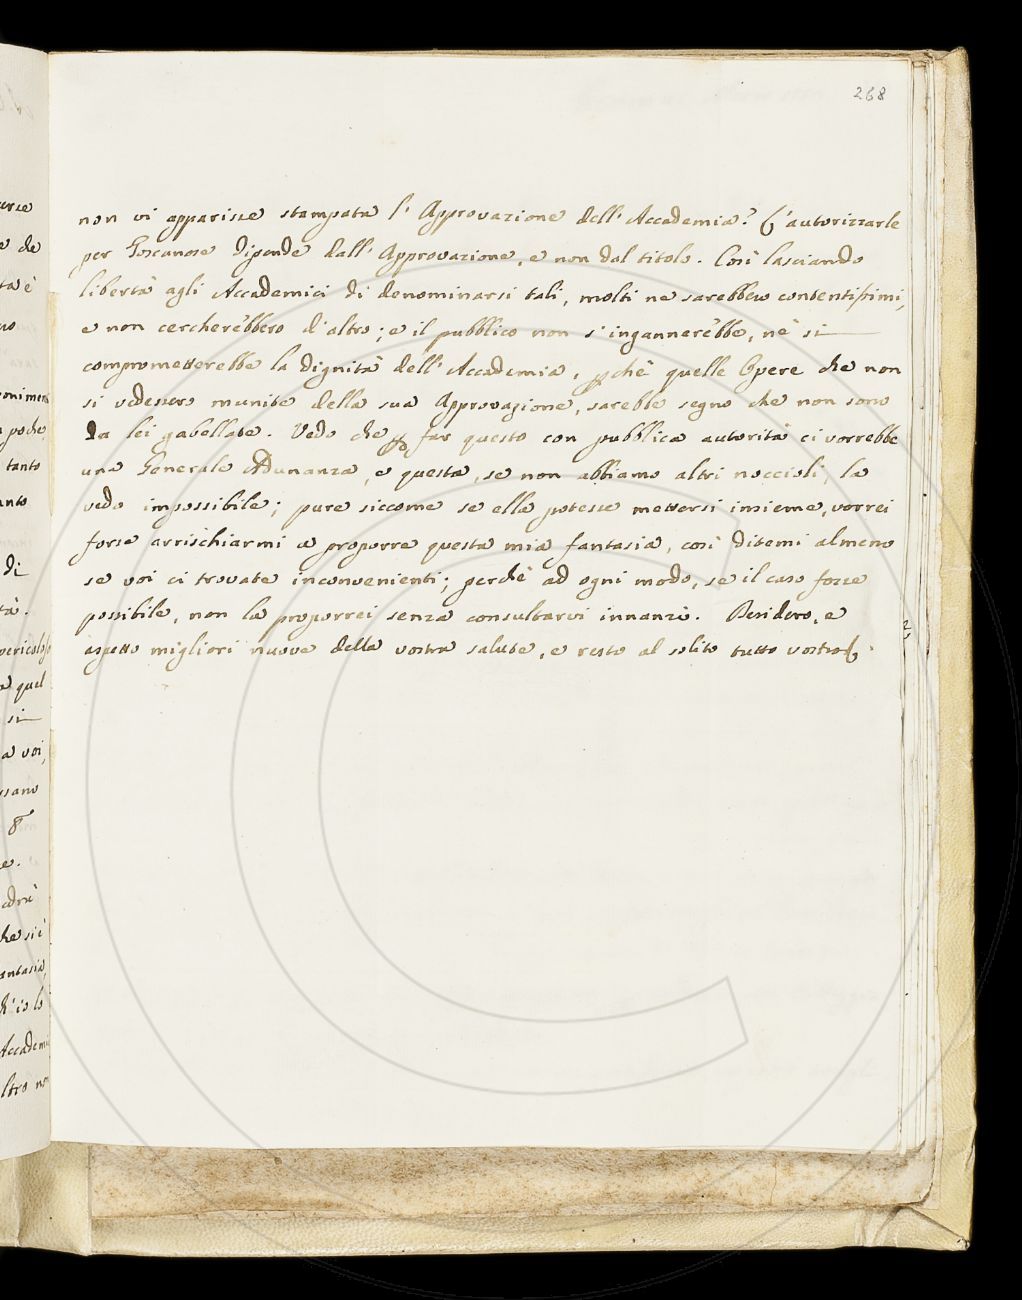 268
non vi apparisse stampata l' Approvazione dell' Accademia? L'autorizzarle
per Toscane dipende dall' Approvazione, e non dal titolo. Così lasciando
libertà agli Accademici di denominarsi tali, molti ne sarebbero contentissimi,
e non cercherebbero d'altro; e il pubblico non s'ingannerebbe, nè si
comprometterebbe la dignità dell' Accademia, pchè quelle Opere che non
si vedessero munite della sua Approvazione, sarebbe segno che non sono
Da lei gabellate. Vedo che p far questo con pubblica autorità ci vorrebbe
una Generale Adunanza, e questa, se non abbiamo altri noccioli, la
vedo impossibile; pure siccome se ella potesse mettersi insieme, vorrei
forse arrischiarmi a proporre questa mia fantasia, così ditemi almeno
se voi ci trovate inconvenienti; perchè ad ogni modo, se il caso fosse
possibile, non la proporrei senza consultarvi innanzi. Desidero, e
aspetto migliori nuove della vostra salute, e resto al solito tutto vostro
urse
e che
ta è
poche,
tanto
anto
Di
tà.
a quel
si
a voi,
ssano
e.
che si è
ch'io lo
Accademi
ltro no